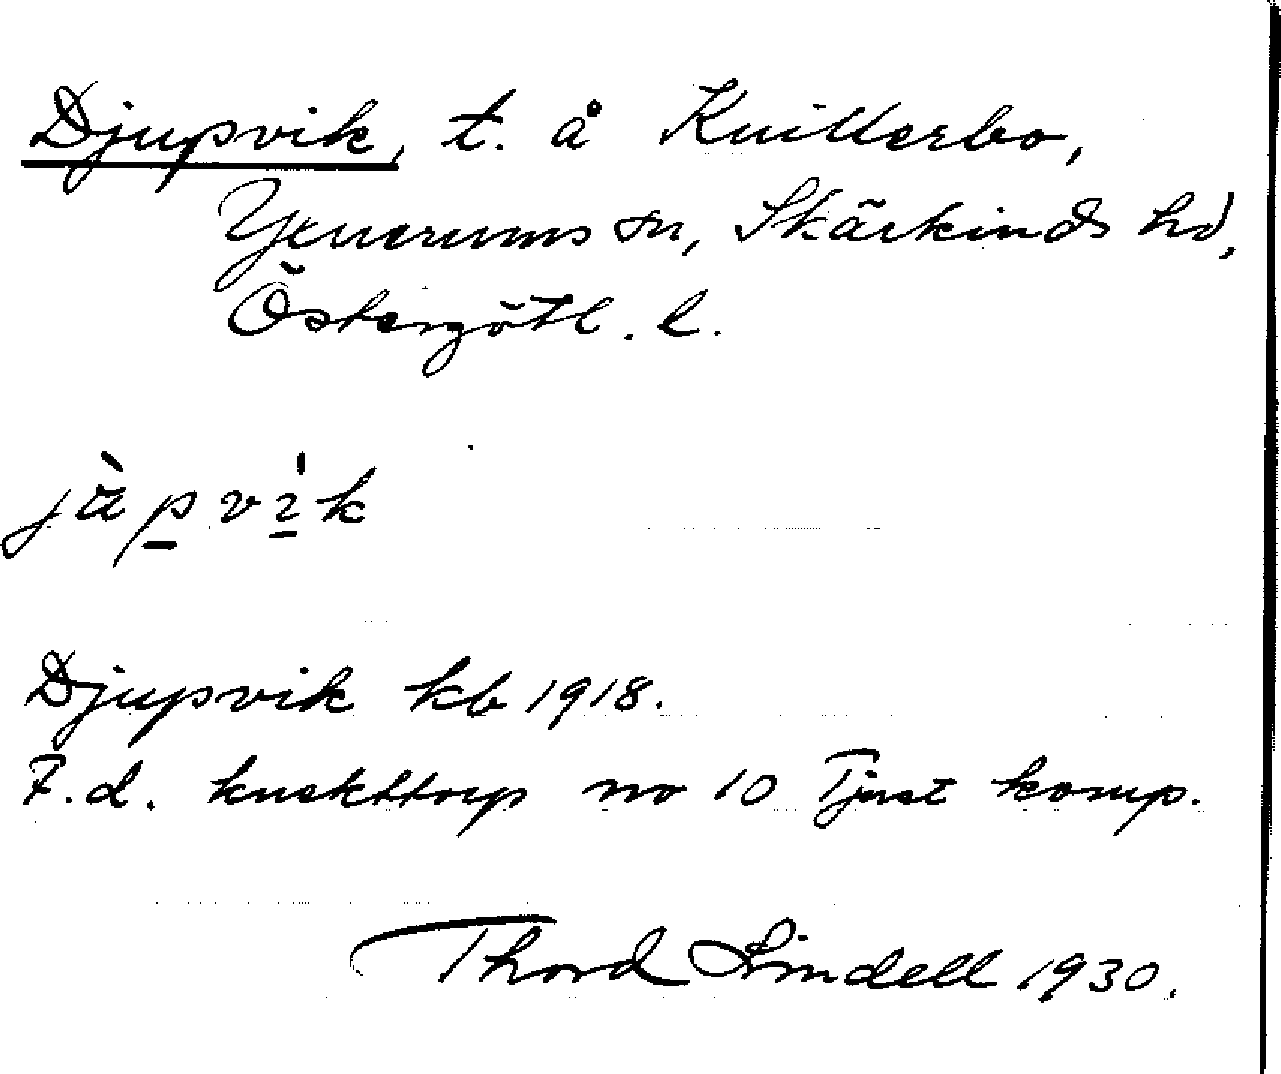 Djupvik, t. å Knitterbo,
Yxnerums sn, Skärkinds hd,
Östergötl. l.
jùpvìk
Djupvik kb 1918.
F.d. knekttorp no 10 Tjust komp.
Thord Lindell 1930.